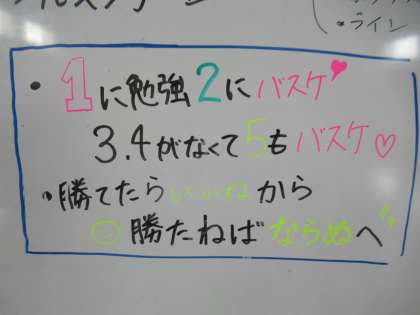 ・ライン
・1に勉強2にバスケ
3.4がなくて5もバスケ♡
・勝てたらいいねから
◎勝たねばならぬへ